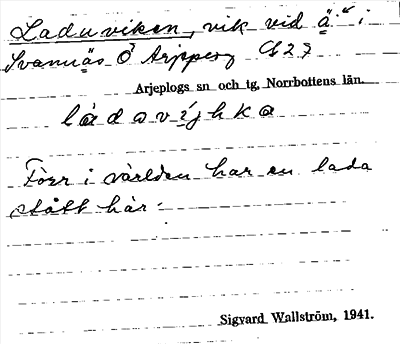 Laduviken, vik vid ä." i
Svannäs Ö Arjeplog
Arjeplogs sn och tg, Norrbottens län.
làdavíjhka
Förr i världen har en lada
stått här.
Sigvard Wallström, 1941.